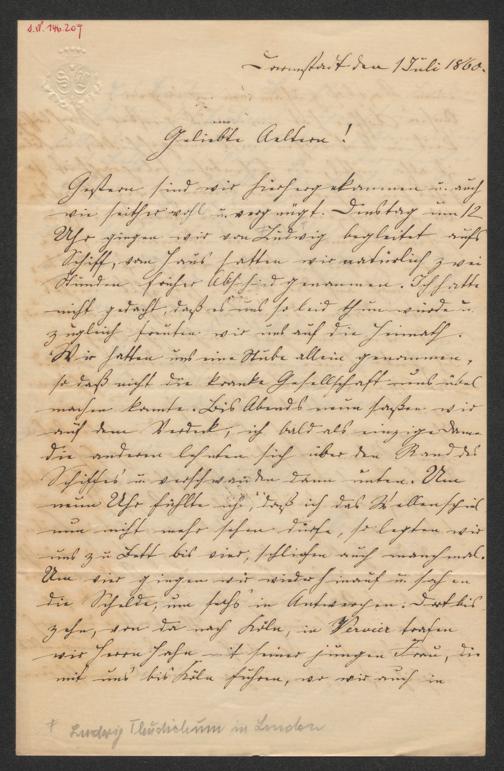 S.N. 146.209
Darmstadt den 1 Juli 1860.
Geliebte Aeltern!
Gestern sind wir hierher gekommen u. auch
wie seither wohl u. vergnügt. Dienstag um 12
Uhr gingen wir von Ludwig begleitet aufs
Schiff, vom Haus hatten wir natürlich zwei
Stunden früher Abschied genommen. Ich hatte
nicht gedacht, daß es uns so leid thun würde u.
zugleich freuten wir uns auf die Heimath.
Wir hatten uns eine Stube allein genommen,
so daß nicht die kranke Gesellschaft uns übel
machen konnte. Bis Abends neun saßen wir
auf dem Verdeck, ich bald als einzige Dame
die anderen lehnten sich über den Rand des
Schiffes u. verschwanden dann unten. Um
neun Uhr fühlte ich, daß ich das Wellenspiel
nun nicht mehr sehen dürfe, so legten wir
uns zu Bett bis vier, schliefen auch manchmal.
Um vier gingen wir wieder hinauf u. sahen
die Schelde, um sechs in Antwerpen. Dort bis
zehn, von da nach Köln, in Vervier trafen
wir Herrn Hahn mit seiner jungen Frau, die
mit uns bis Köln fuhren, wo wir auch in
+ Ludwig Thudichum in London